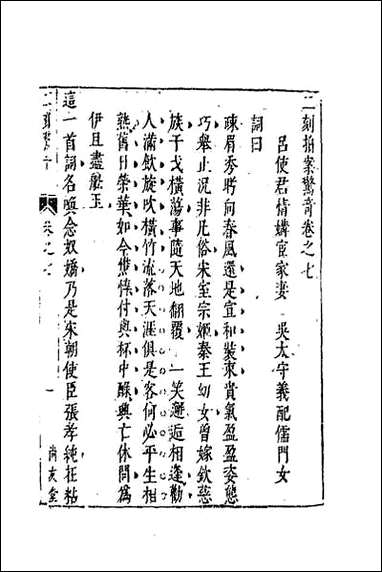 二刻拍案驚奇卷之七
呂使君情媾宦家妻 吳太守義配儒門女
詞曰
疎眉秀盻向春風還是宣和裝束貴氣盈盈姿態
巧舉止況非凡俗宋室宗姬秦王幼女曾嫁欽慈
族干戈橫蕩事隨天地翻覆 一笑邂逅相逢勸
人滿飲旋吹橫竹流落天涯俱是客何必平生相
熟舊日榮華如今憔悴付與杯中醁興亡休問爲
伊且盡船玉
這一首詞名喚念奴嬌乃是宋朝使臣張孝純在粘
二刻驚奇
卷之七
一
尚友堂